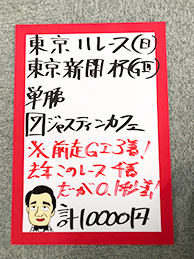 東京11レース(日)
東京新聞杯(GⅢ)
単勝
図ジャスティンカフェ
※前走GⅠ3着!
去年このレース4着
だが0.1秒差!
計10000円